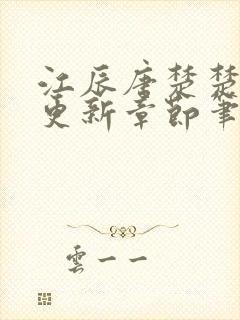 江辰唐楚楚
更新章節筆
雲一一